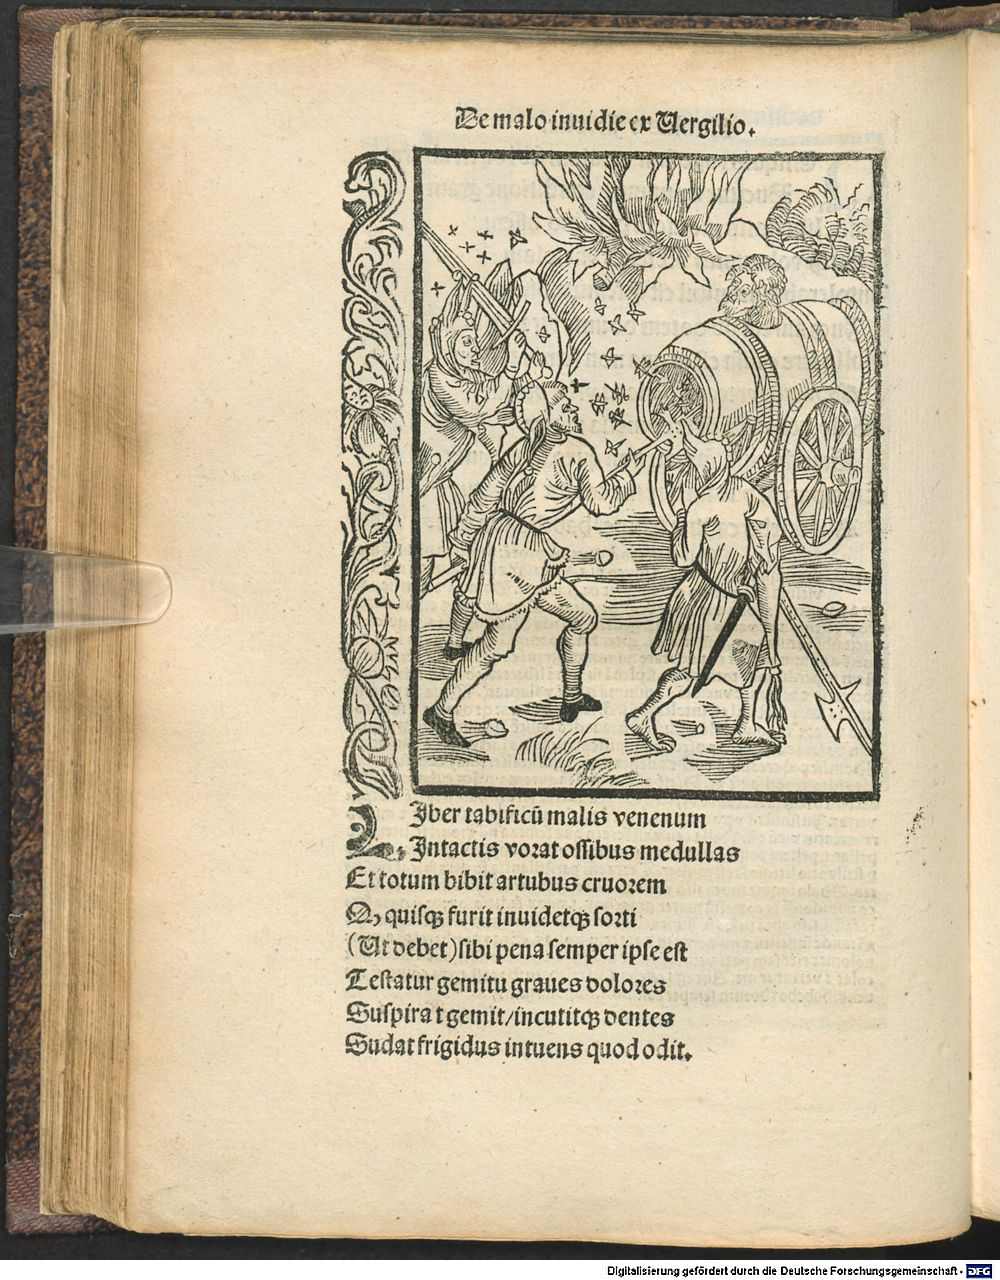 De malo inuidie ex Uergilio.
LIber tabificū malis venenum
Intactis vorat ossibus medullas
Et totum bibit artubus cruorem
Q, quisqꝫ furit inuidetqꝫ sorti
(Ut debet) sibi pena semper ipse est
Testatur gemitu graues dolores
Suspirat gemit/incutitqꝫ dentes
Sudat frigidus intuens quod odit.
Digitalisierung gefördert durch die Deutsche Forschungsgemeinschaft - DFG